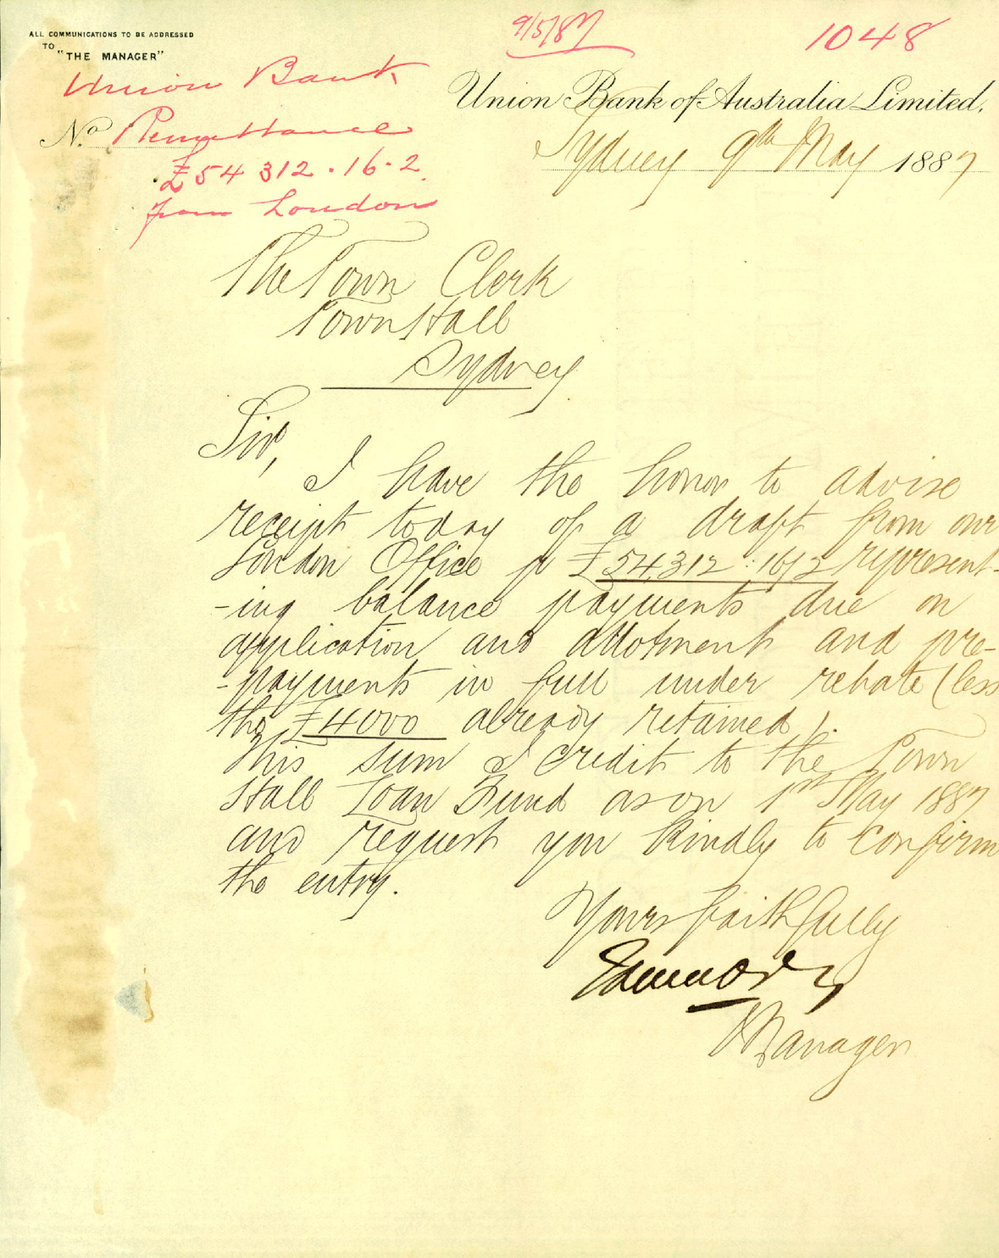 ALL COMMUNICATIONS TO BE ADDRESSED
TO
"THE MANAGER"
9/5/87
1048
Union Bank
Remittance
£54 312.16.2
from London
Union Bank of Australia Limited.
No
Sydney 9th May 1887
The Town Clerk
Town Hall
Sydney
Sir,
I have the honor to advise
receipt today of a draft from our
London Office fr £54,312:16/2 represent-
-ing balance payments due on
application and allotment and pre-
-payments in full under rebate (less
the £4000 already retained).
This sum I credit to the Town
Hall Loan Fund as on 1st May 1887
and request you kindly to confirm
the entry.
Yours faithfully
Manager